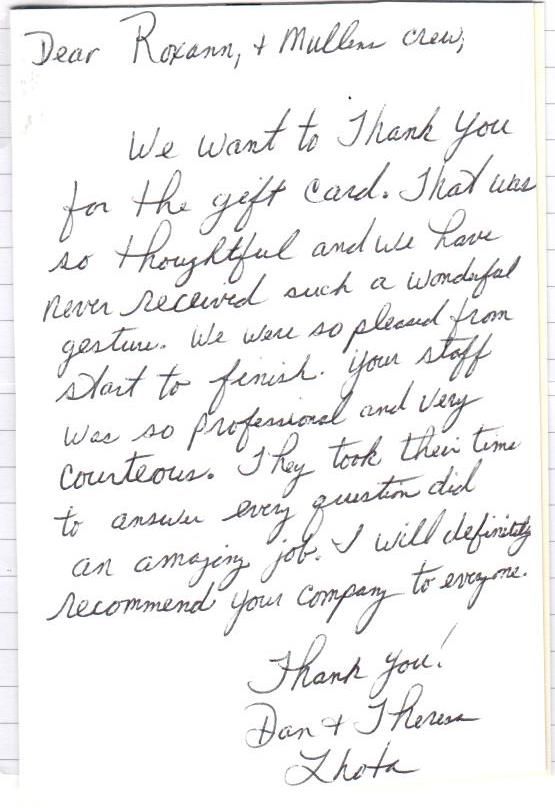 Dear Roxann, + Mullens crew,
We want to Thank You
for the gift card. That was
so thoughtful and we have
never received such a wonderful
gesture. We were so pleased from
start to finish. Your staff
was so professional and very
courteous. They took their time
to answer every question did
an amazing job. I will definitely
recommend your company to everyone.
Thank you!
Dan + Theresa
Lhota